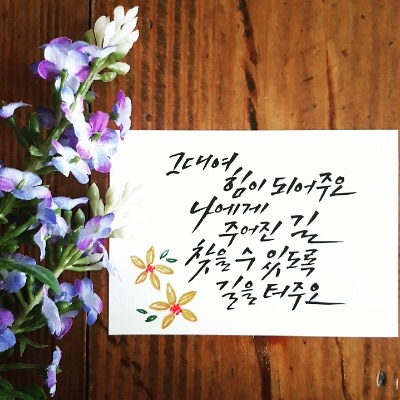 그대여
힘이 되어주오
나에게
주어진 길
찾을 수 있도록
길을 터주오